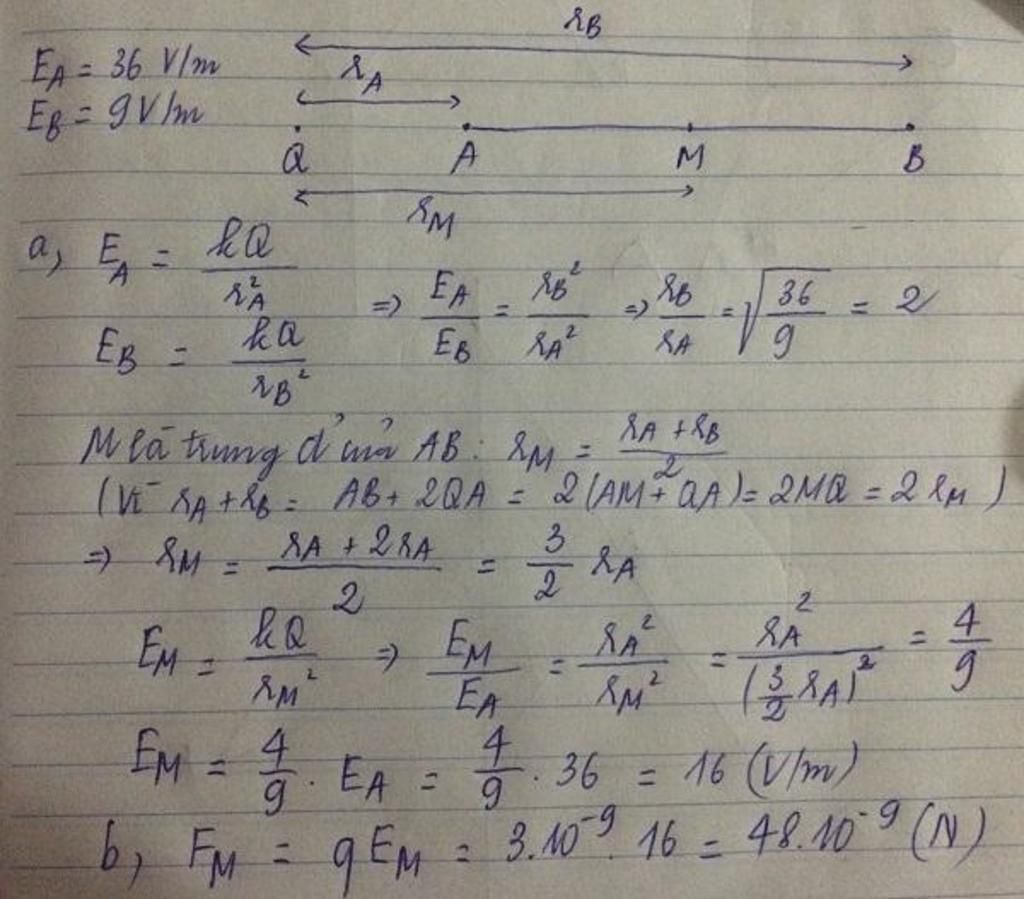 r_B
E_A = 36 V/m
r_A
E_B = 9V/m
Q A M B
r_M
a, E_A = kQ/r_A²
E_B = kQ/r_B² => E_A/E_B = r_B²/r_A² => r_B/r_A = √(36/9) = 2
M là trung đ' của AB: r_M = (r_A + r_B)/2
(Vì r_A + r_B = AB + 2QA = 2(AM + QA) = 2MQ = 2r_M)
=> r_M = (r_A + 2r_A)/2 = 3/2 r_A
E_M = kQ/r_M² => E_M/E_A = r_A²/r_M² = r_A²/(3/2 r_A)² = 4/9
E_M = 4/9 . E_A = 4/9 . 36 = 16 (V/m)
b, F_M = qE_M = 3.10⁻⁹ . 16 = 48.10⁻⁹ (N)